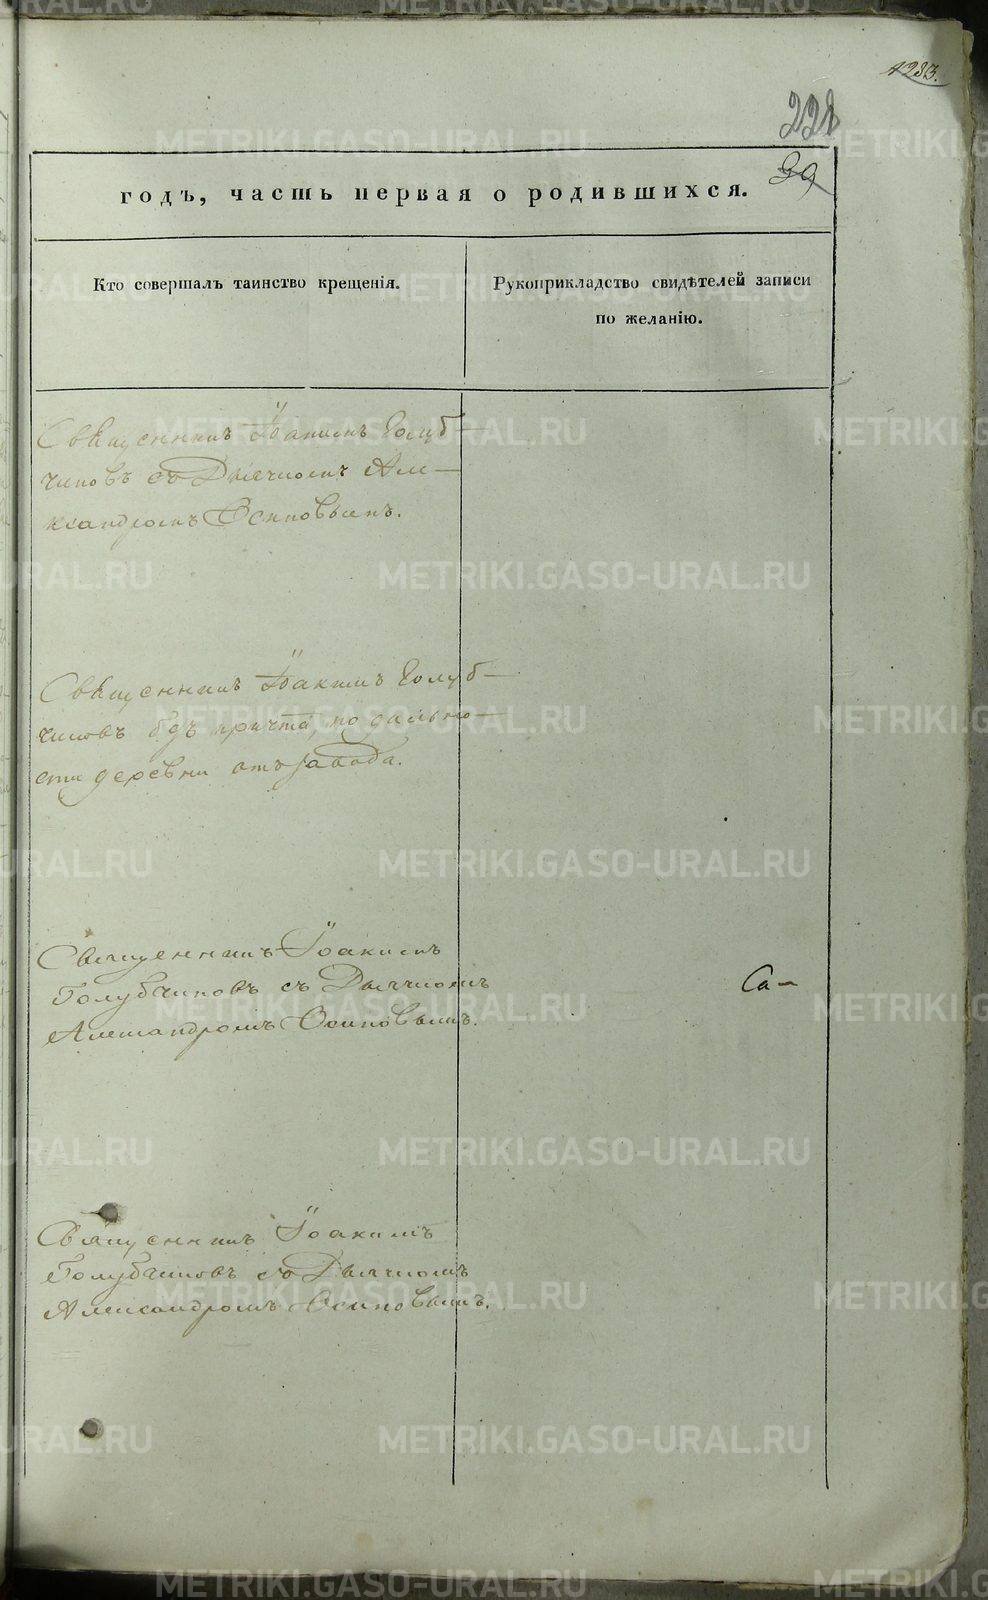 1283.
228
39
годъ, часть первая о родившихся.
Кто совершалъ таинство крещенія.
Рукоприкладство свидѣтелей записи
по желанію.
Священникъ Іоакимъ Голуб-
чиковъ съ Дьячкомъ Але-
ксандромъ Осиповымъ.
Священникъ Іоакимъ Голуб-
чиковъ безъ причта, по дально-
сти деревни отъ завода.
Священникъ Іоакимъ
Голубчиковъ съ Дьячкомъ
Александромъ Осиповымъ.
Са-
Священникъ Іоакимъ
Голубчиковъ съ Дьячкомъ
Александромъ Осиповымъ.
METRIKI.GASO-URAL.RU